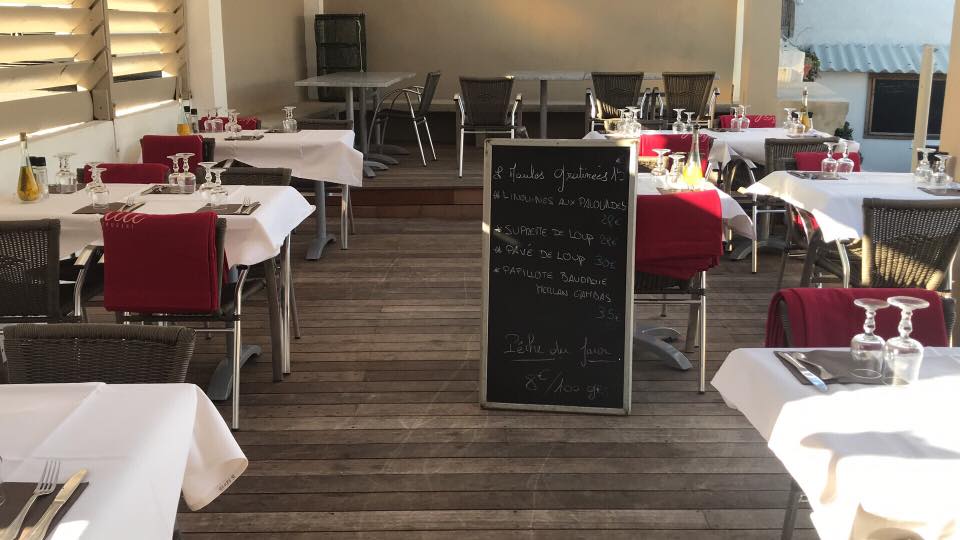 8 Moules Gratinées 15
* LINGUINES AUX PALOURDES
28€
* SUPREME DE LOUP 28€
* PAVÉ DE LOUP 30€
* PAPILLOTE BAUDROIE
MERLAN GAMBAS
35€
Pêche du jour
8€/100 gr